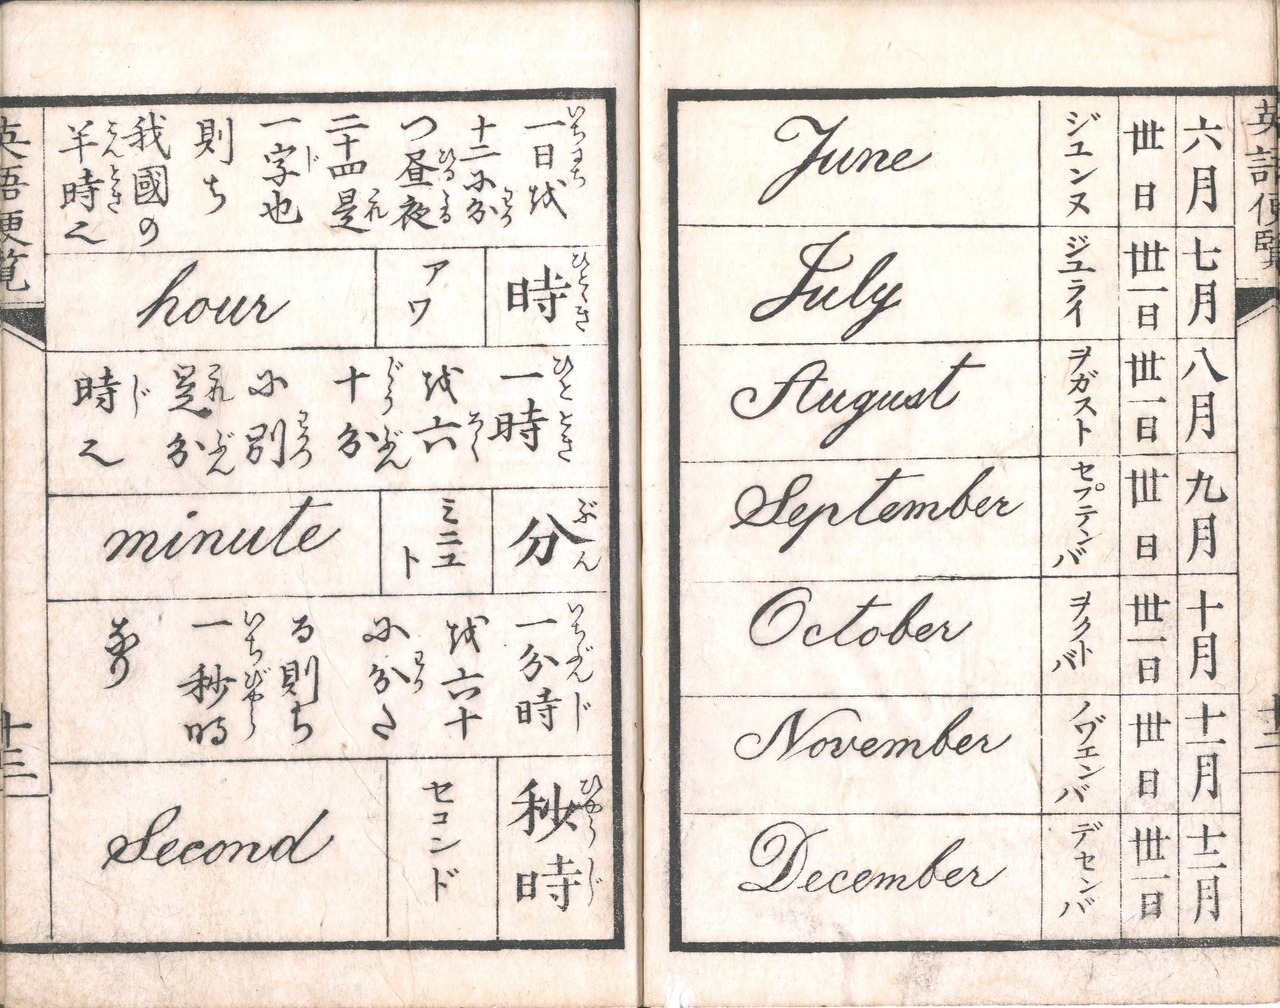 英語便覧
十二
六月 卅日 ジユンヌ June
七月 卅一日 ジユライ July
八月 卅一日 ヲガスト August
九月 卅日 セプテンバ September
十月 卅一日 ヲクトバ October
十一月 卅日 ノヴエンバ November
十二月 卅一日 デセンバ December
一日を
十二に分
つ昼夜
二十四是
一字也
則ち
我國の
半時也
時 アワ hour
一時
を六
十分
に別
是分
時也
分 ミニユト minute
一分時
を六十
に分た
る則ち
一秒時
なり
秒時 セコンド Second
英語便覧
十三